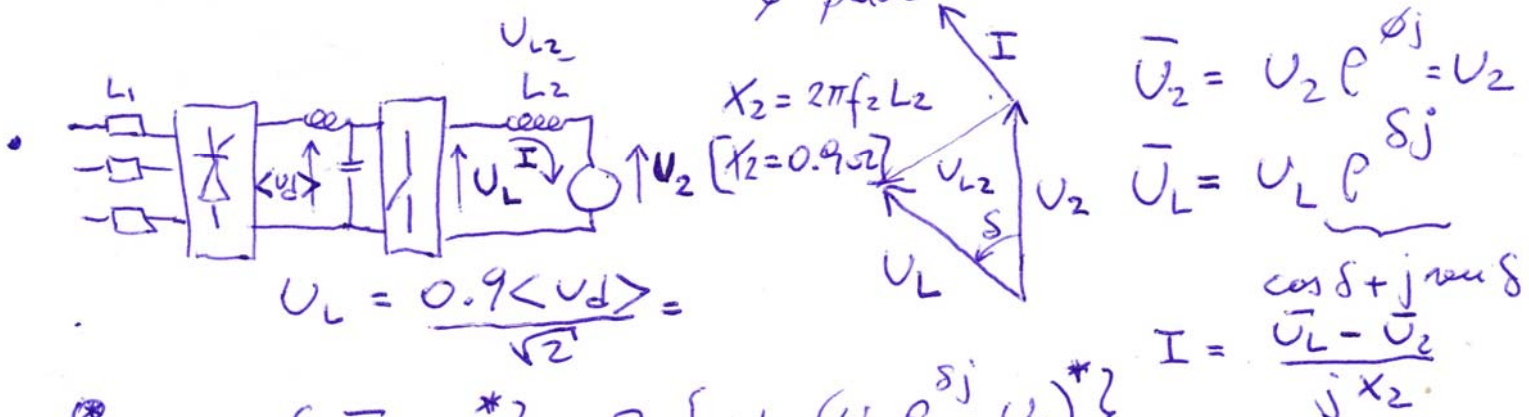 U_L2
L1
L2
<ud>
U_L
I
U_2
X_2 = 2πf_2 L_2
[X_2=0.9Ω]
I
U_L2
U_2
δ
U_L
Ū_2 = U_2 e^{øj} = U_2
Ū_L = U_L e^{δj}
cos δ + j sen δ
U_L = 0.9<Ud> / √2 =
I = (Ū_L - Ū_2) / j X_2